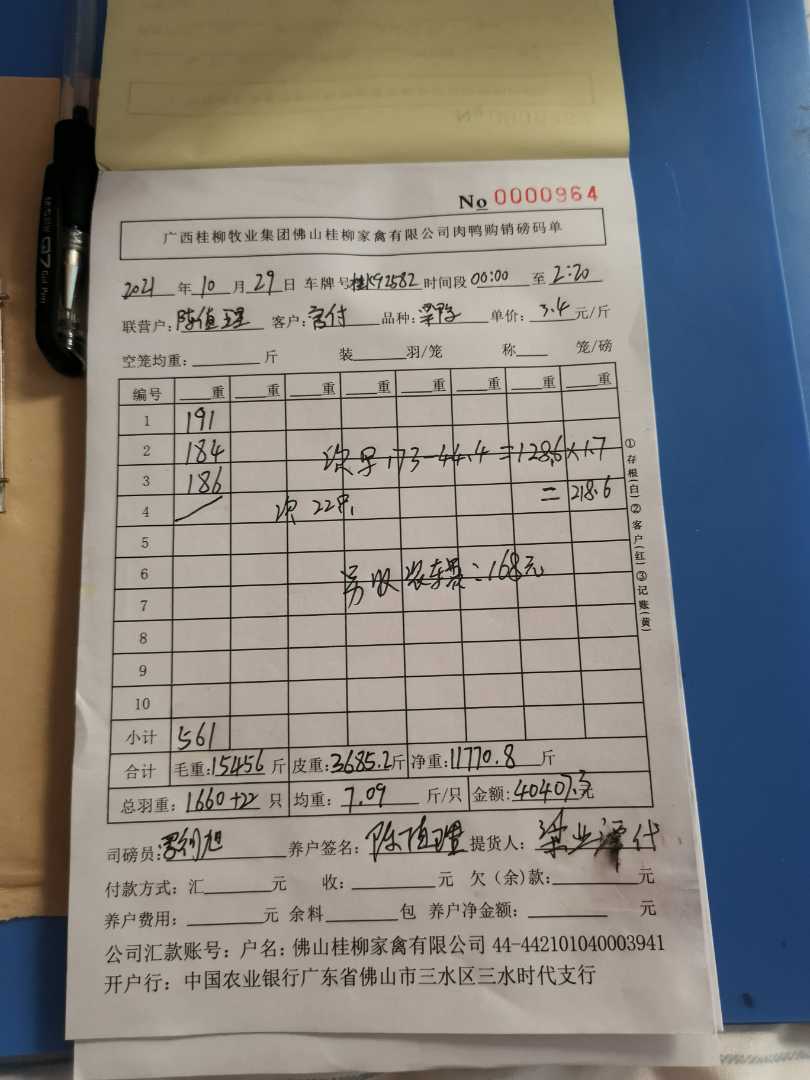 No 0000964
广西桂柳牧业集团佛山桂柳家禽有限公司肉鸭购销磅码单
2021 年 10 月 29 日 车牌号 桂K92582 时间段 00:00 至 2:20
联营户: 陈值 客户: 付 品种: 单价: 3.4 元/斤
空笼均重: 斤 装 羽/笼 称 笼/磅
编号 重 重 重 重 重 重 重 重
1 191
2 184
次 173-44.4=128.6×1.7
3 186
4 次 22只 =218.6
5
6
另收装车费:168元
7
8
9
10
小计 561
合计 毛重:15456 斤 皮重:3685.2斤 净重:11770.8 斤
总羽重: 1660+22 只 均重: 7.09 斤/只 金额: 40407元
司磅员: 旭 养户签名: 陈值 提货人: 业 代
付款方式: 汇 元 收: 元 欠(余)款: 元
养户费用: 元 余料 包 养户净金额: 元
公司汇款账号: 户名: 佛山桂柳家禽有限公司 44-442101040003941
开户行: 中国农业银行广东省佛山市三水区三水时代支行
①存根(白)②客户(红)③记账(黄)